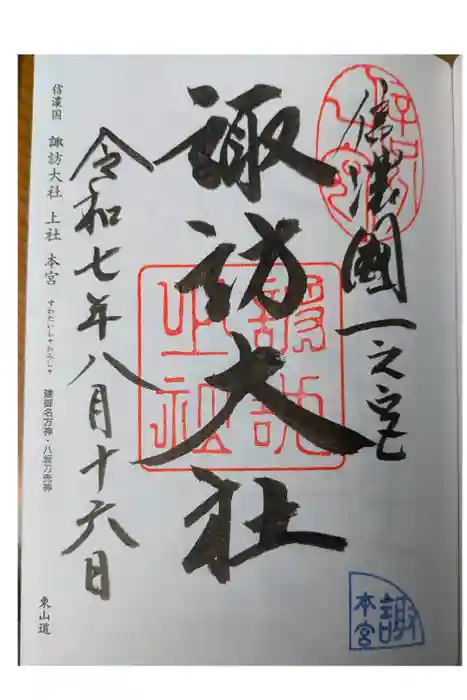 信濃國一之宮
諏訪大社
令和七年八月十六日
信濃国 諏訪大社 上社 本宮 すわたいしゃかみしゃ 建御名方神・八坂刀売神 東山道
諏訪
上社
諏
本宮